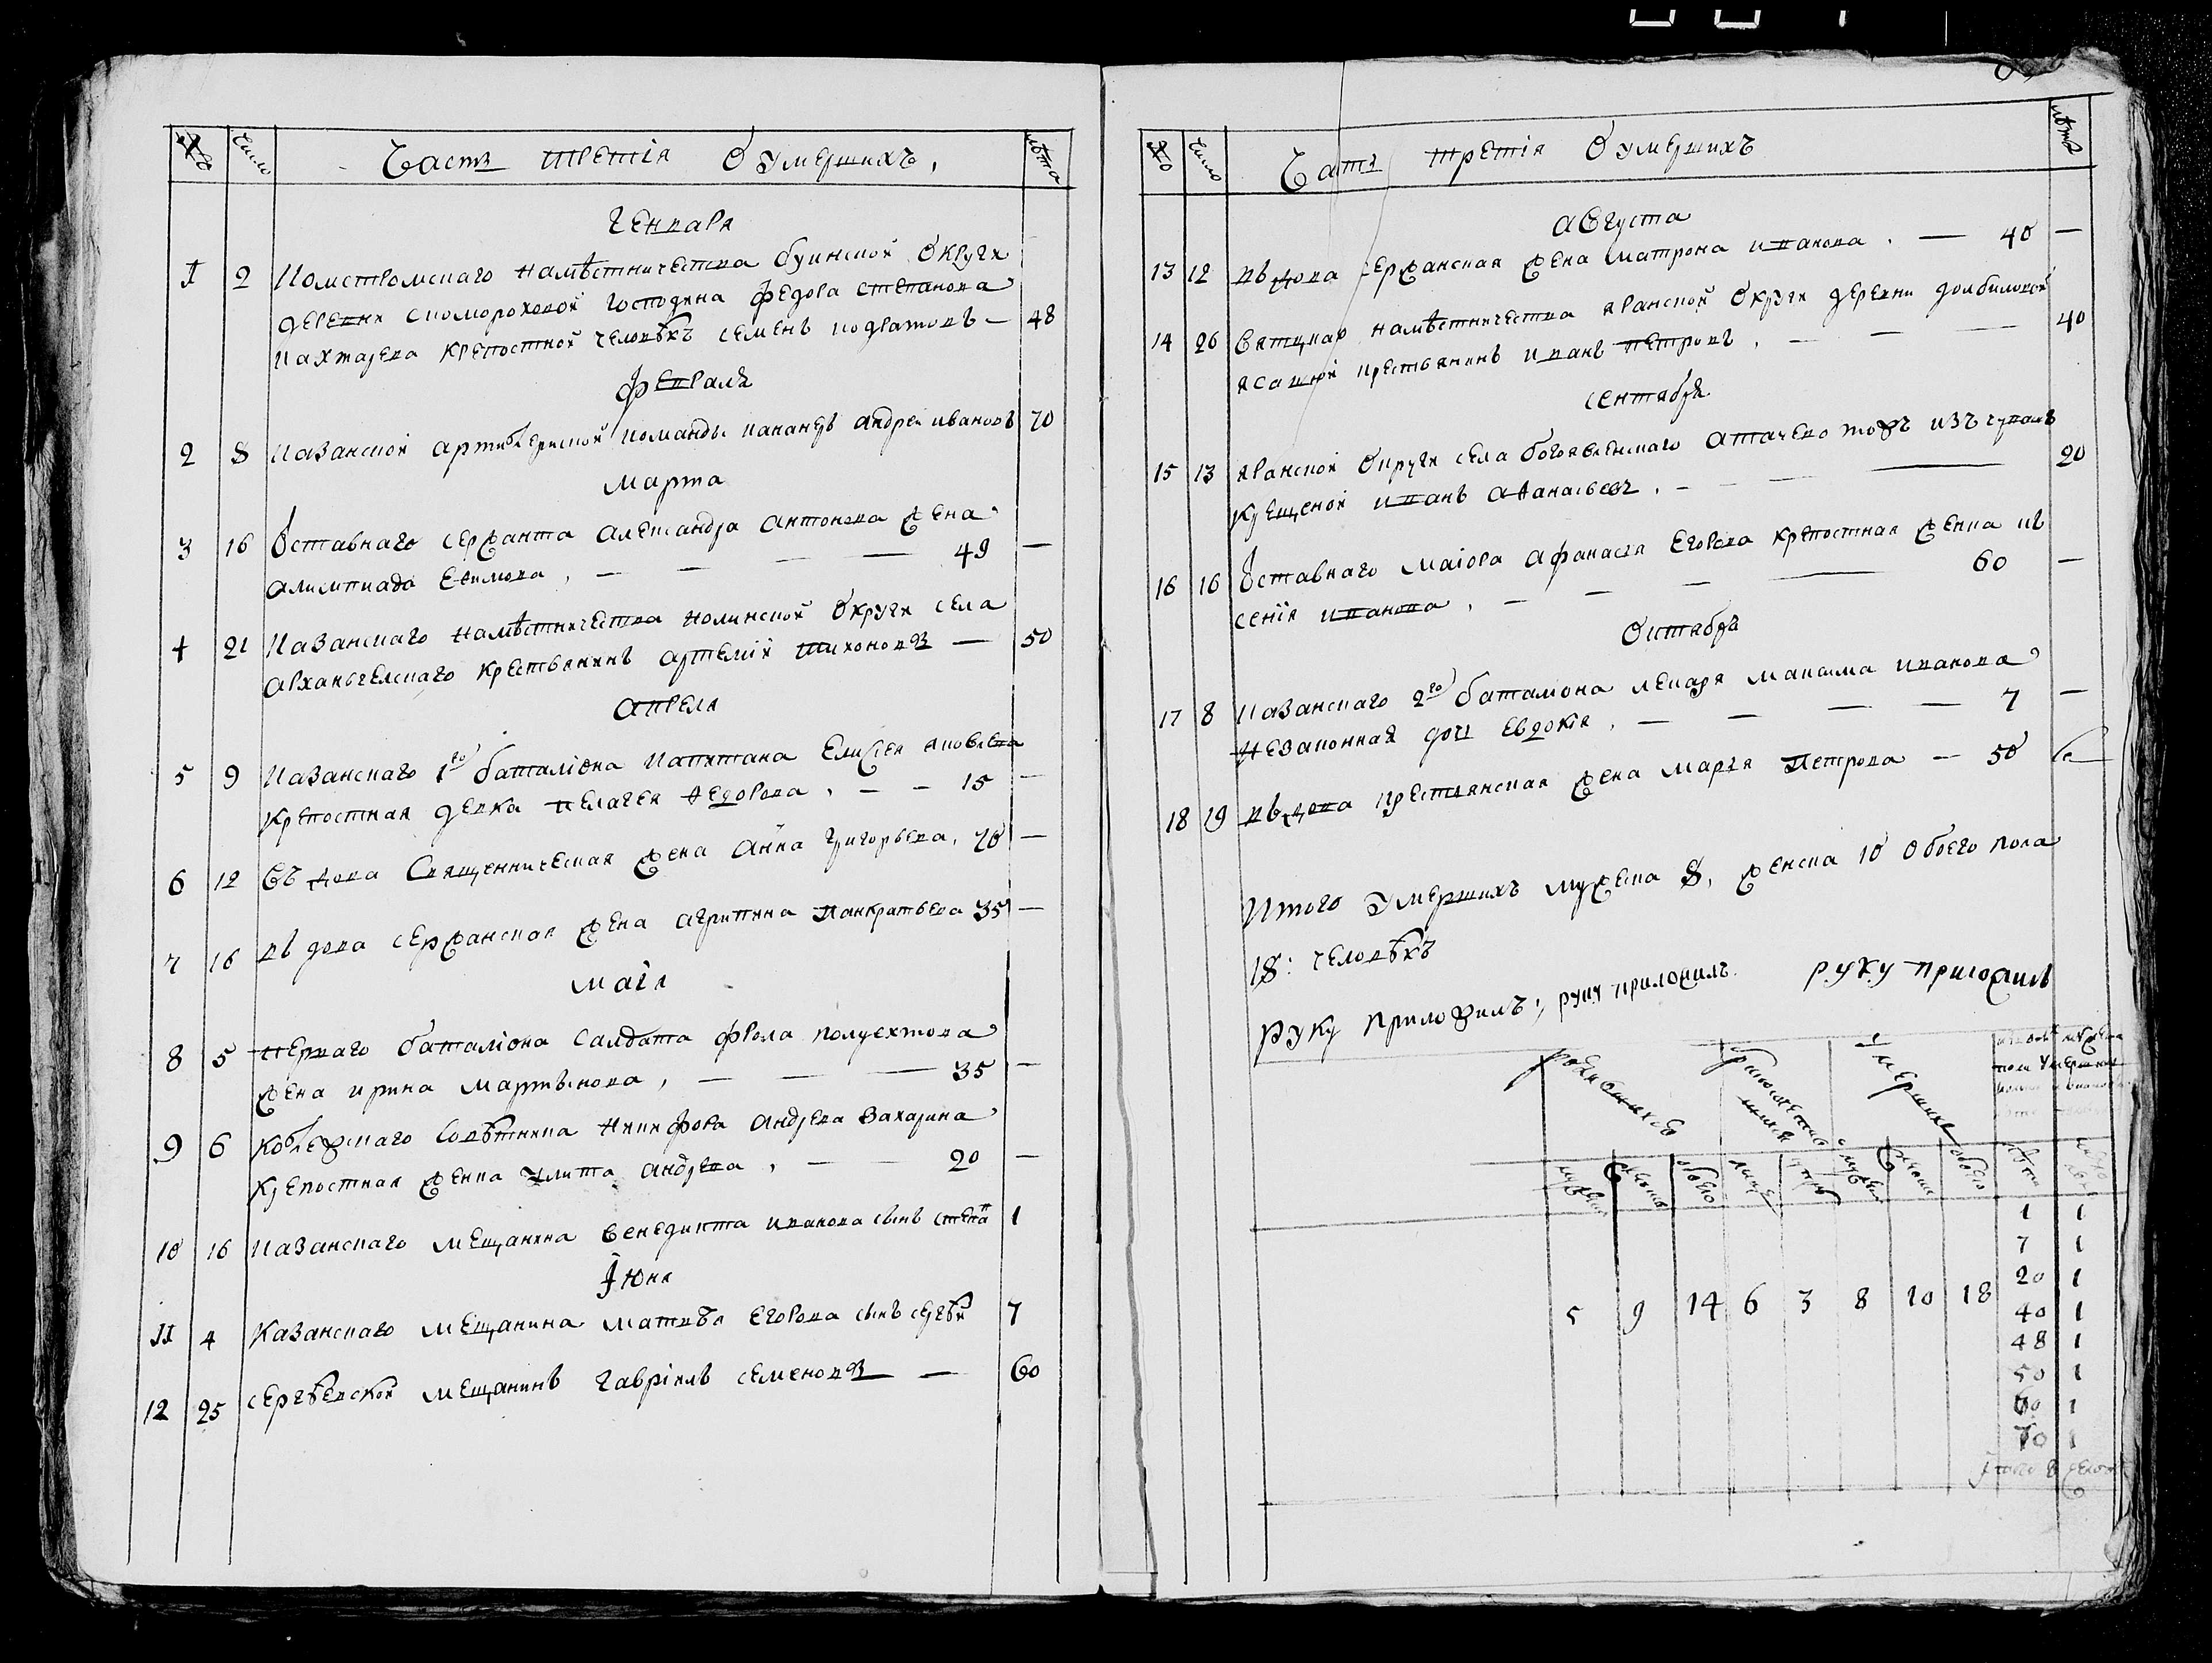 № число Часть третія О умершихъ, лѣта
Генваря
1 2 Костромскаго намѣстничества буинской Округи
деревни скомороховой господина федора степанова
крепостной человѣкъ семенъ — 48
февраля
2 8 Казанской артилерской команды Андреи ивановъ 70
марта
3 16 Оставнаго сержанта александра антонова жена
алимпиада Ефимова , — — — 49 —
4 21 Казанскаго намѣстничества нолинской Округи села
архангелскаго крестьянинъ артемій тихоновъ — 50
апреля
5 9 Казанскаго 1го баталіона капитана Елисея яковлева
крепостная девка пелагея Ѳедорова , — — 15 —
6 12 Въдова Священническая жена анна григорьева, 70 —
7 16 въдова сержанская жена агрипина панкратьева 35 —
маія
8 5 перваго баталіона салдата фрола полуехтова
жена ирина мартынова , — — — 35 —
9 6 колежскаго Совѣтника никифора андрева захарина
крепостная женка улита андрева , — — 20 —
10 16 Казанскаго мещанина венедикта иванова сынъ степа 1
Іюня
11 4 Казанскаго мещанина матвѣя егорова сынъ сергѣй 7
12 25 сергѣевской мещанинъ гавріилъ семеновъ — 60
№ число Часть третія О умершихъ лѣта
августа
13 12 въдова сержанская жена матрона иванова . — 40 —
14 26 Вятцкаго намѣстничества яранской Округи деревни
ясашной крестьянинъ иванъ петровъ , — — — 40
сентября
15 13 яранской Округи села богоявленскаго тожъ изъ
крещеной иванъ аѲанасьевъ , — — — 20
16 16 Оставнаго маіора афанасія Егорова крепостная женка кь
сенія иванова , — — — 60 —
Октября
17 8 Казанскаго 2го баталиона лекаря максима иванова
незаконная дочь евдокія , — — — — 7 —
18 19 въдова крестьянская жена марія петрова — 50
Итого умершихъ мужеска 8, женска 10 обоего пола
18: человѣкъ
руку приложилъ, руку приложилъ. руку приложилъ
родившихся умершихъ
1 1
7 1
20 1
5 9 14 6 3 8 10 18 40 1
48 1
50 1
60 1
70 1